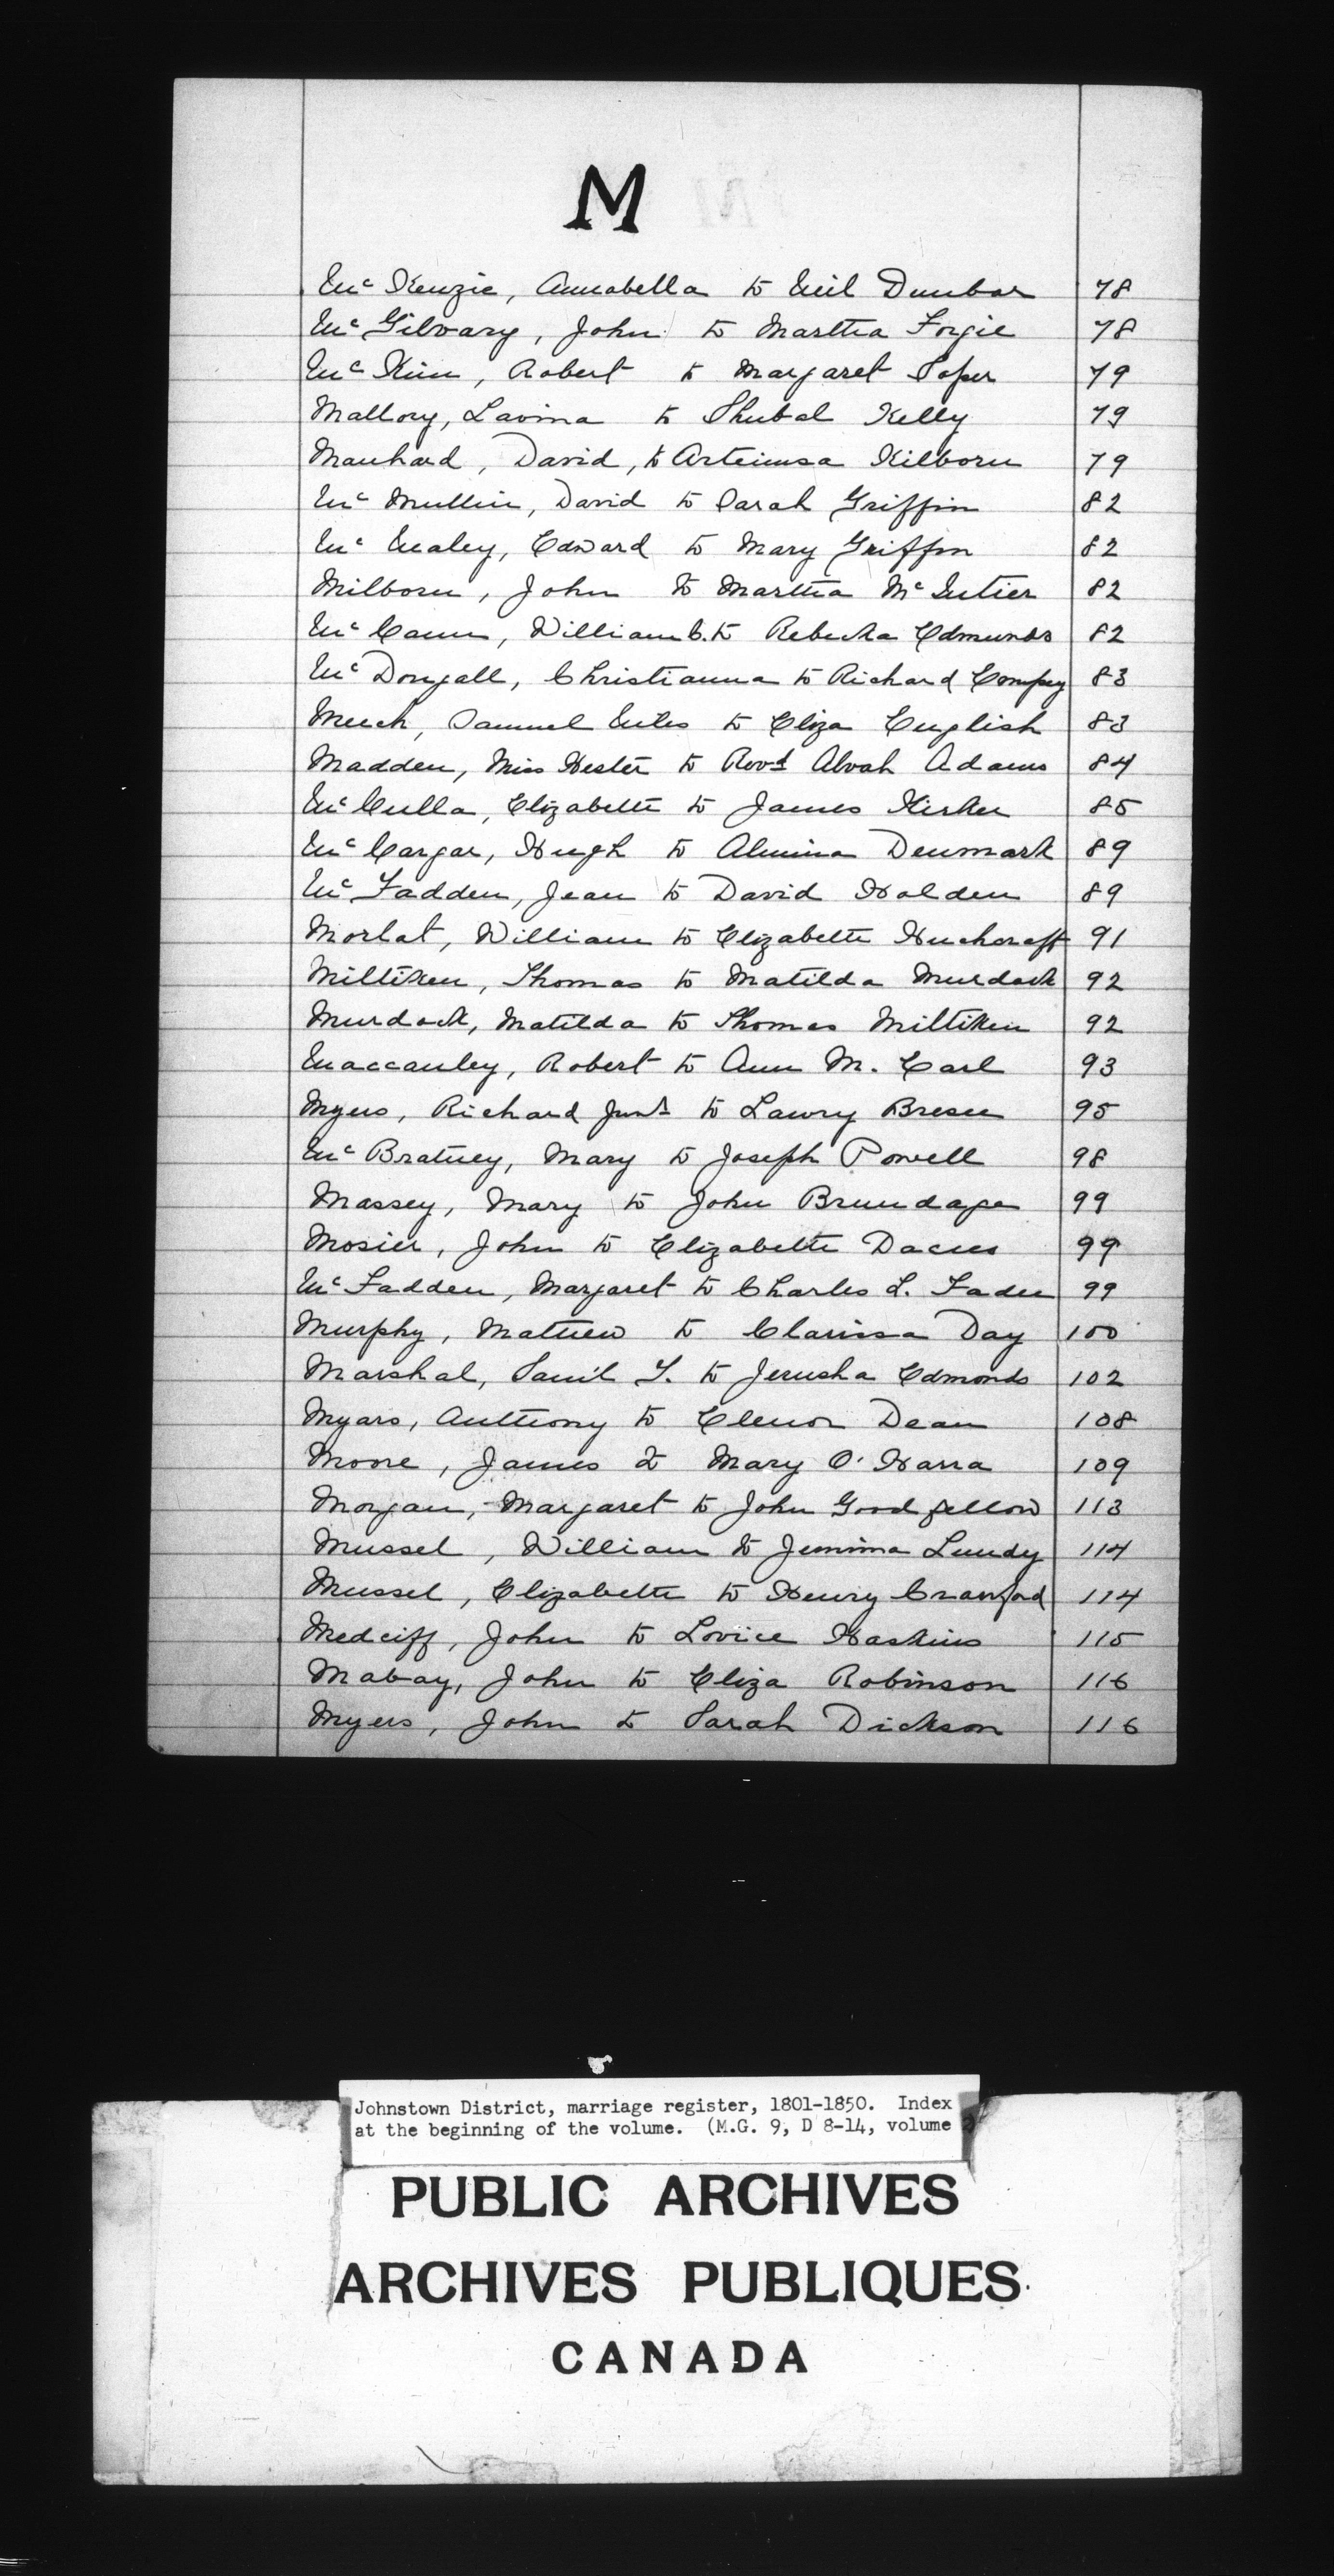 M
McKenzie, Annabella to Neil Dunbar 78
McGilvary, John to Martha Forgie 78
McKim, Robert to Margaret Soper 79
Mallory, Lavina to Shubal Kelly 79
Manhard, David, to Artemisa Kilborn 79
McMullin, David to Sarah Griffin 82
McNealey, Edward to Mary Griffin 82
Milborn, John to Martha McIntier 82
McCann, William C. to Rebecka Edmunds 82
McDongall, Christianna to Richard 83
Meech, Samuel Niles to Eliza English 83
Madden, Miss Hester to Revd Alvah Adams 84
McCulla, Elizabeth to James Kirker 85
McCargar, Hugh to Almina Denmark 89
McFadden, Jean to David Holden 89
Morlat, William to Elizabeth Huchcraft 91
Milliken, Thomas to Matilda Murdock 92
Murdock, Matilda to Thomas Milliken 92
Maccauley, Robert to Ann M. Carl 93
Myers, Richard Junr to Lawry Bresee 95
McBratney, Mary to Joseph Powell 98
Massey, Mary to John Brundage 99
Mosier, John to Elizabeth Dacres 99
McFadden, Margaret to Charles L. Fader 99
Murphy, Mathew to Clarissa Day 100
Marshal, Saml Y. to Jerusha Edmonds 102
Myars, Anthony to Elenor Dean 108
Moore, James to Mary O'Harra 109
Morgan, Margaret to John Goodfellow 113
Mussel, William to Jemima Lundy 114
Mussel, Elizabeth to Henry Crawford 114
Medciff, John to Lovice Haskins 115
Mabay, John to Eliza Robinson 116
Myers, John to Sarah Dickson 116
Johnstown District, marriage register, 1801-1850. Index
at the beginning of the volume. (M.G. 9, D 8-14, volume
PUBLIC ARCHIVES
ARCHIVES PUBLIQUES
CANADA